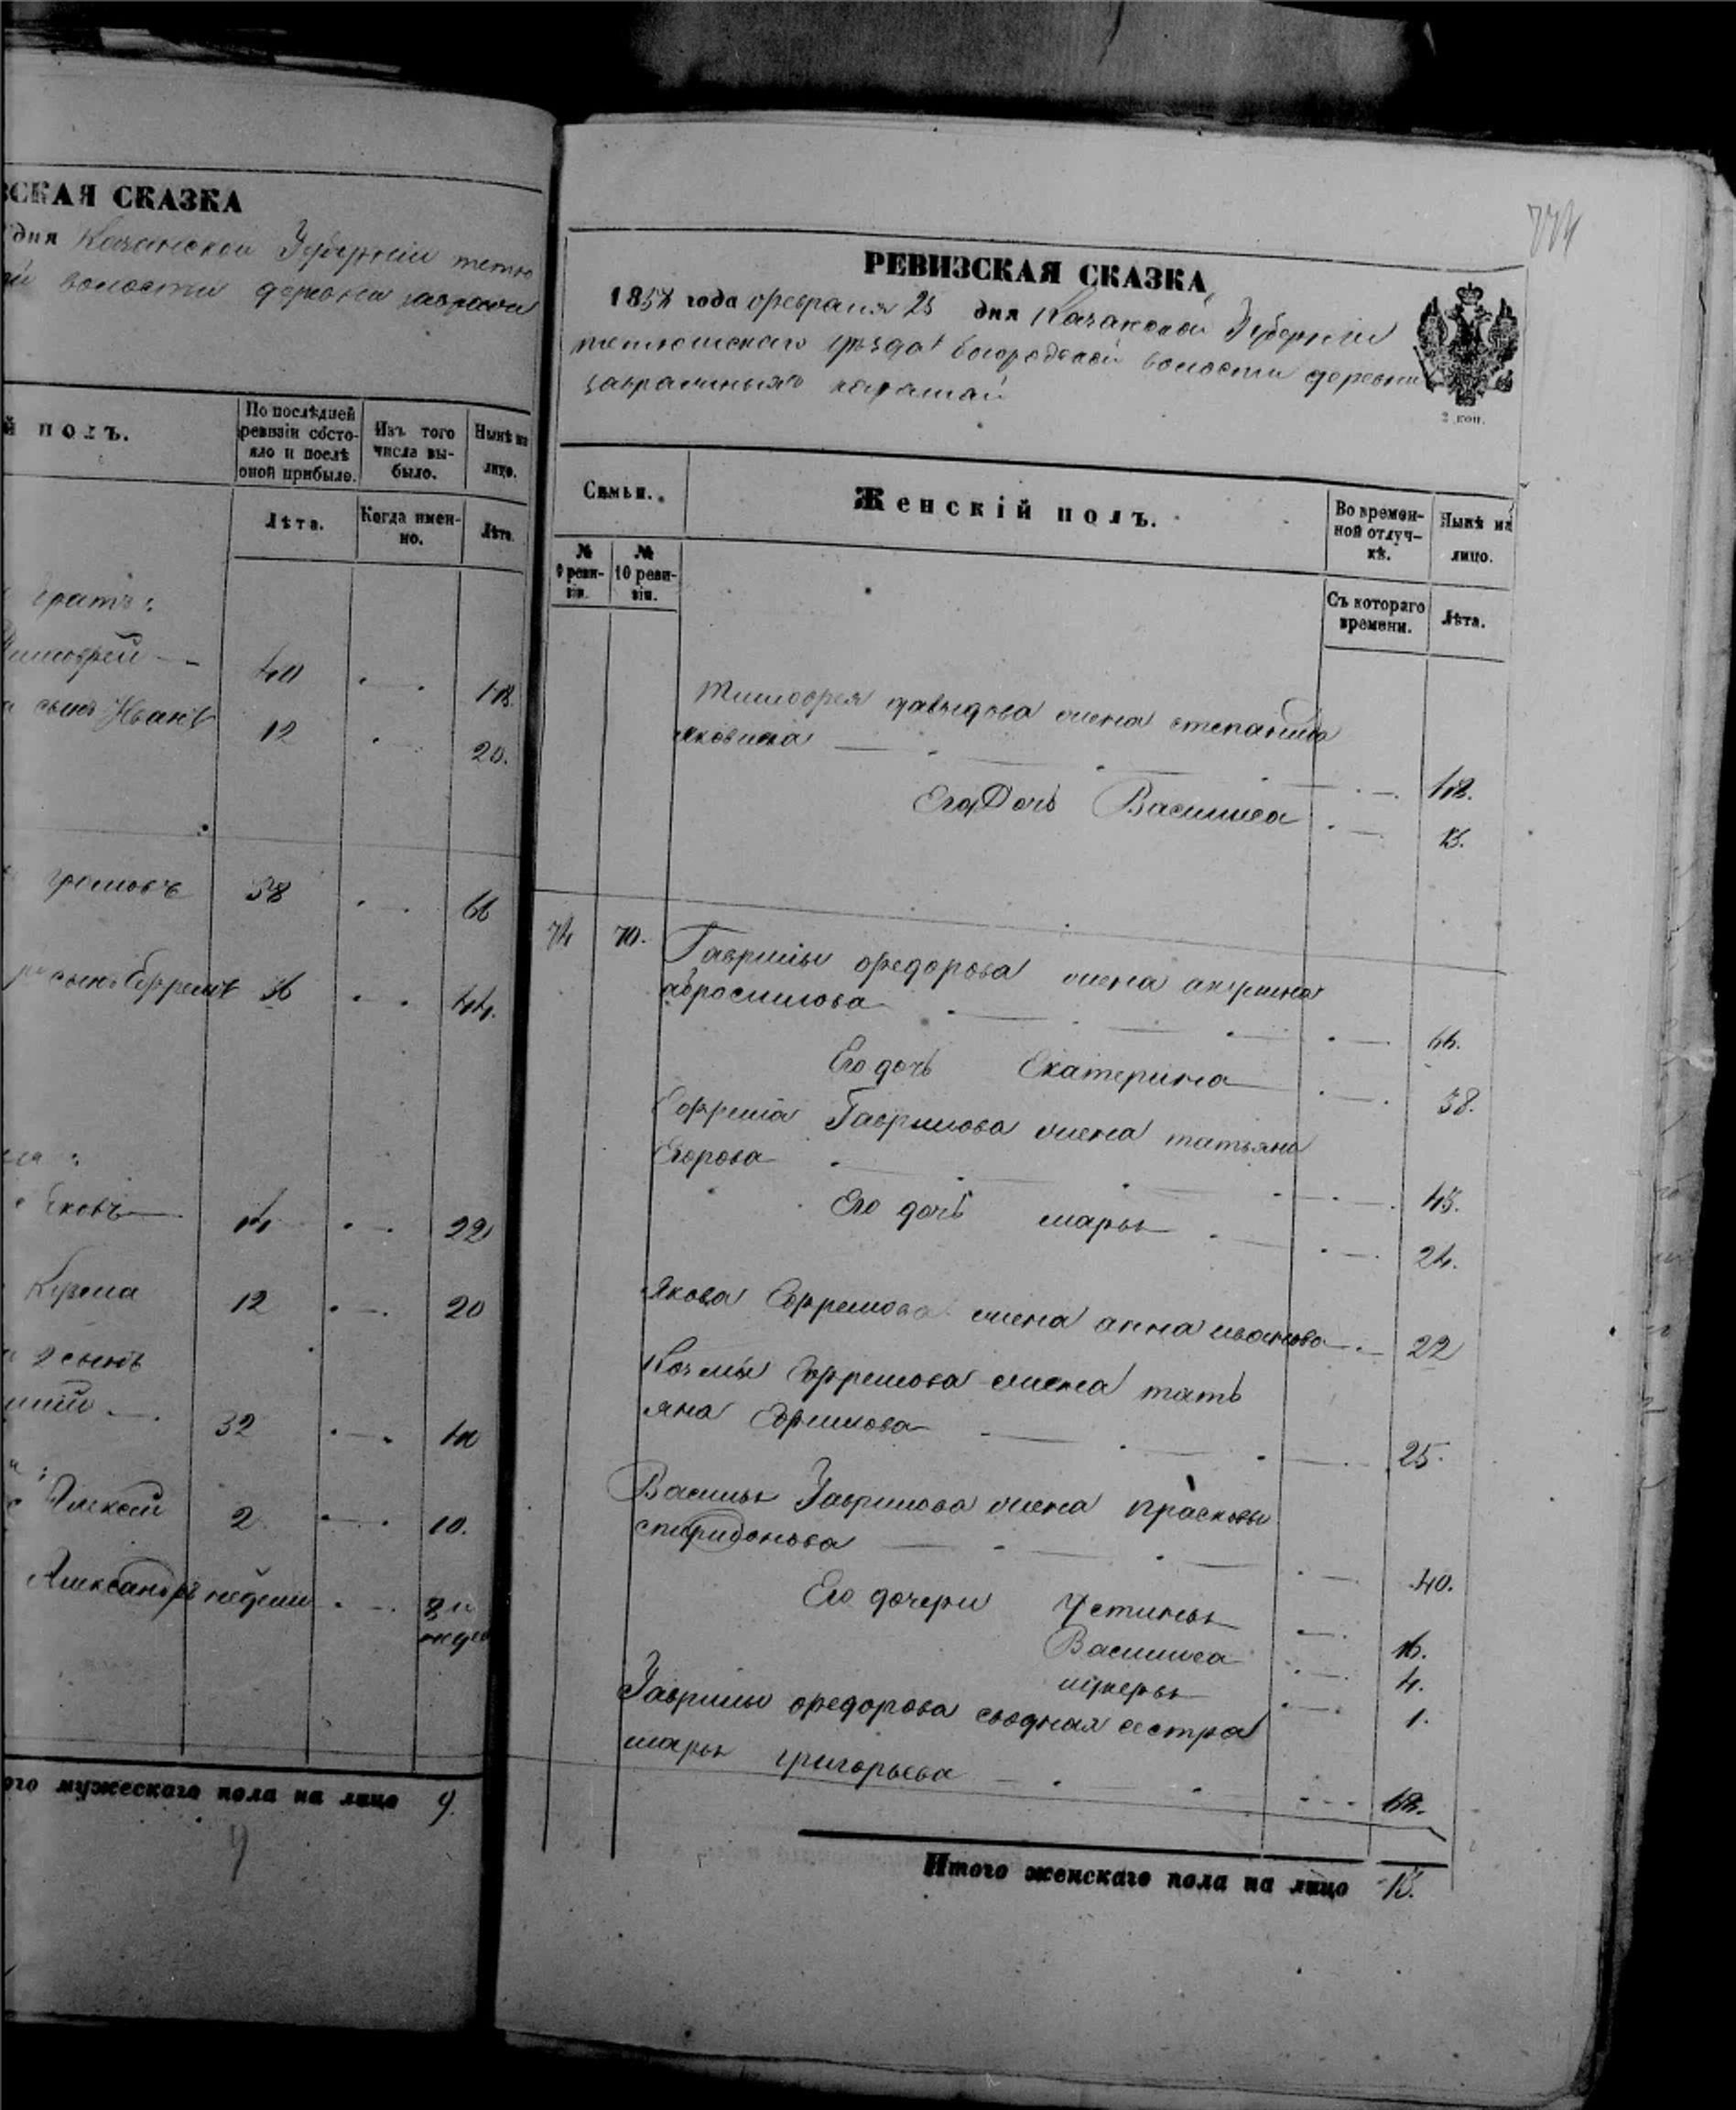 СКАЯ СКАЗКА
дня Казанской Губернии тетю
й волости деревни заврачи
й полъ.
По послѣдней ревизіи состояло и послѣ оной прибыло.
Изъ того числа выбыло.
Нынѣ на лицо.
Лѣта.
Когда именно.
Лѣта.
братъ:
Тимофей 40 48.
сынъ Иванъ 12 20.
58 66
сынъ Ефремъ 36 44.
Яковъ 14 22
Кузма 12 20
2 сынъ
32 40
Алексей 2 10.
Александръ недели 8 и
недел
ого мужескаго пола на лицо 9.
9
774
РЕВИЗСКАЯ СКАЗКА
1858 года февраля 25 дня Казанской Губернии
тетюшскаго уѣзда богородской волости деревни
2 коп.
Семьи.
Женскій полъ.
Во временной отлучкѣ.
Нынѣ на лицо.
№ 9 ревизіи.
№ 10 ревизіи.
Съ котораго времени.
Лѣта.
Тимофея давыдова жена степанида
яковлева 48.
Его Дочь Василиса 13.
74 70. Гаврилы федорова жена акулина
абросимова 66.
Его дочь Екатерина 38.
Ефрема Гаврилова жена татьяна
Егорова 45.
Его дочь марья 24.
Якова Ефремова жена анна иванова 22
Козмы Ефремова жена тать
яна Ефимова 25.
Василья Гаврилова жена Прасковья
спиридонова 40.
Его дочери Устинья 16.
Василиса 4.
лукерья 1.
Гаврилы федорова сводная сестра
марья григорьева 48.
Итого женскаго пола на лицо 13.